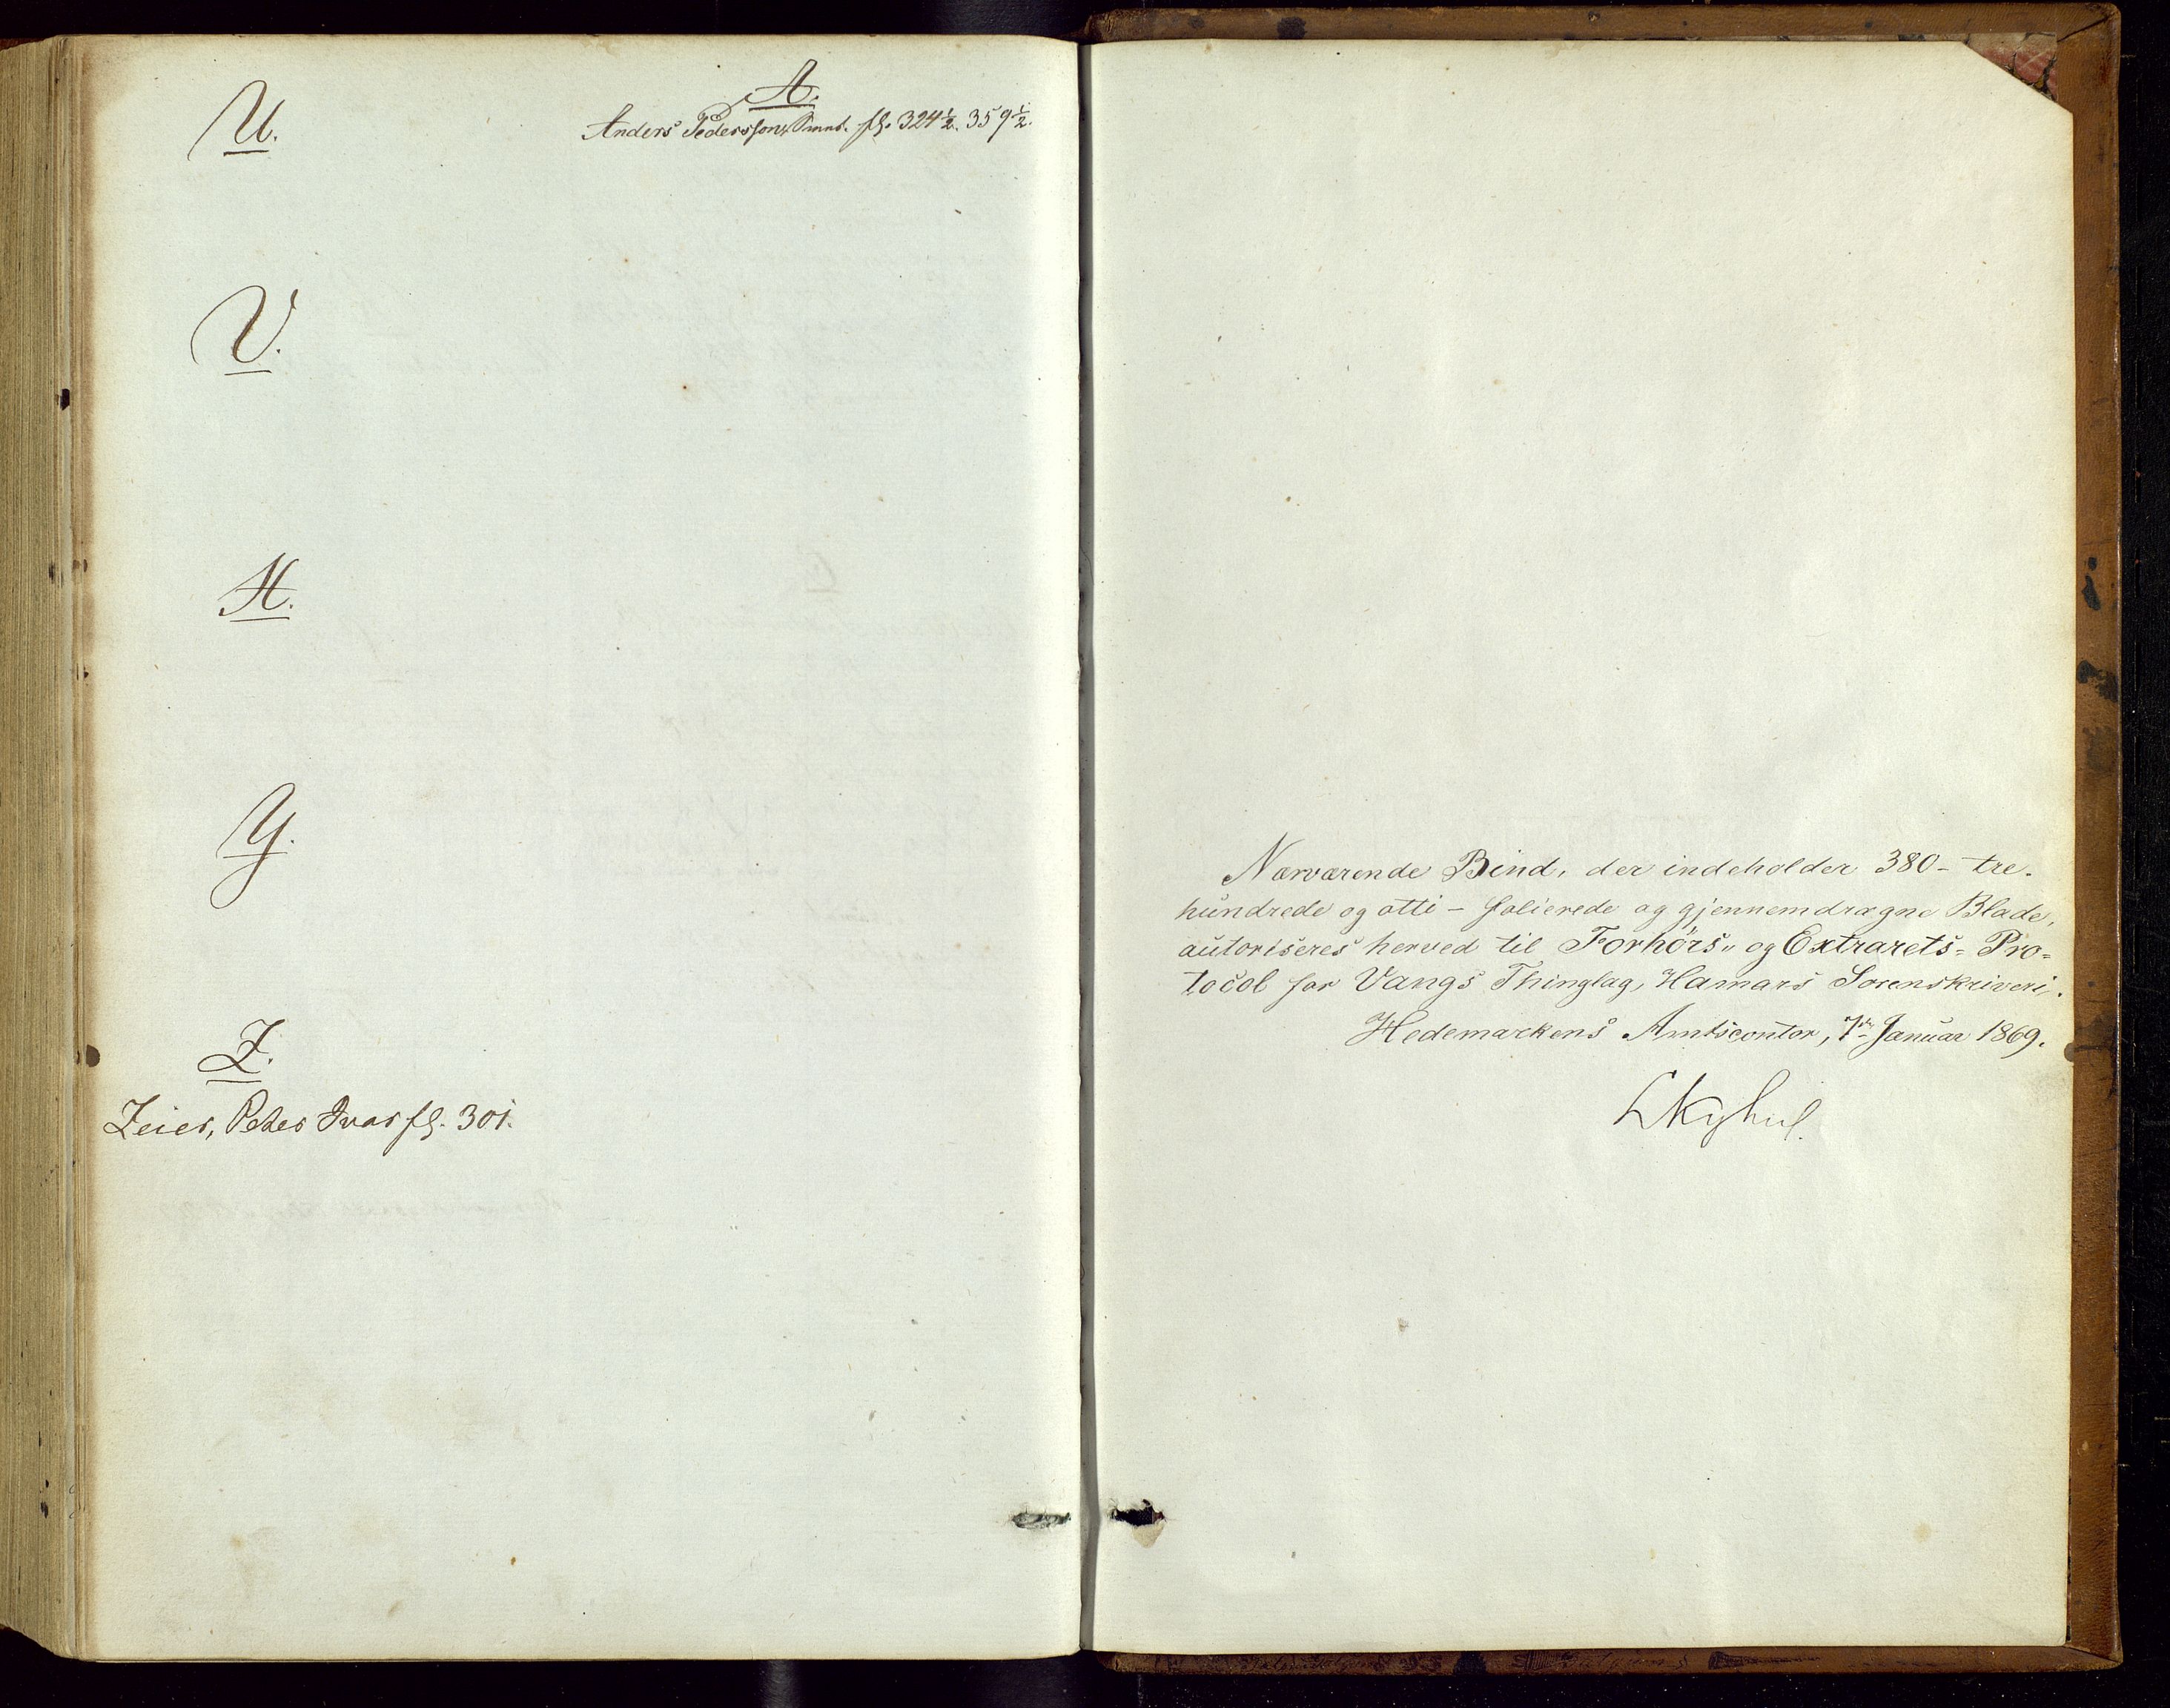 U.
A.
Anders Pedersson, fl. 324½. 359½.
V.
Y.
Z.
Zeier, Peder Ivar fl. 301.
Nærværende Bind, der indeholder 380 - tre-
hundrede og otti - folierede og gjennemdragne Blade,
autoriseres herved til Forhørs- og Extrarets- Pro-
tocol for Vangs Thinglag, Hamars Sorenskriveri.
Hedemarkens Amtscontor, 7de Januar 1869.